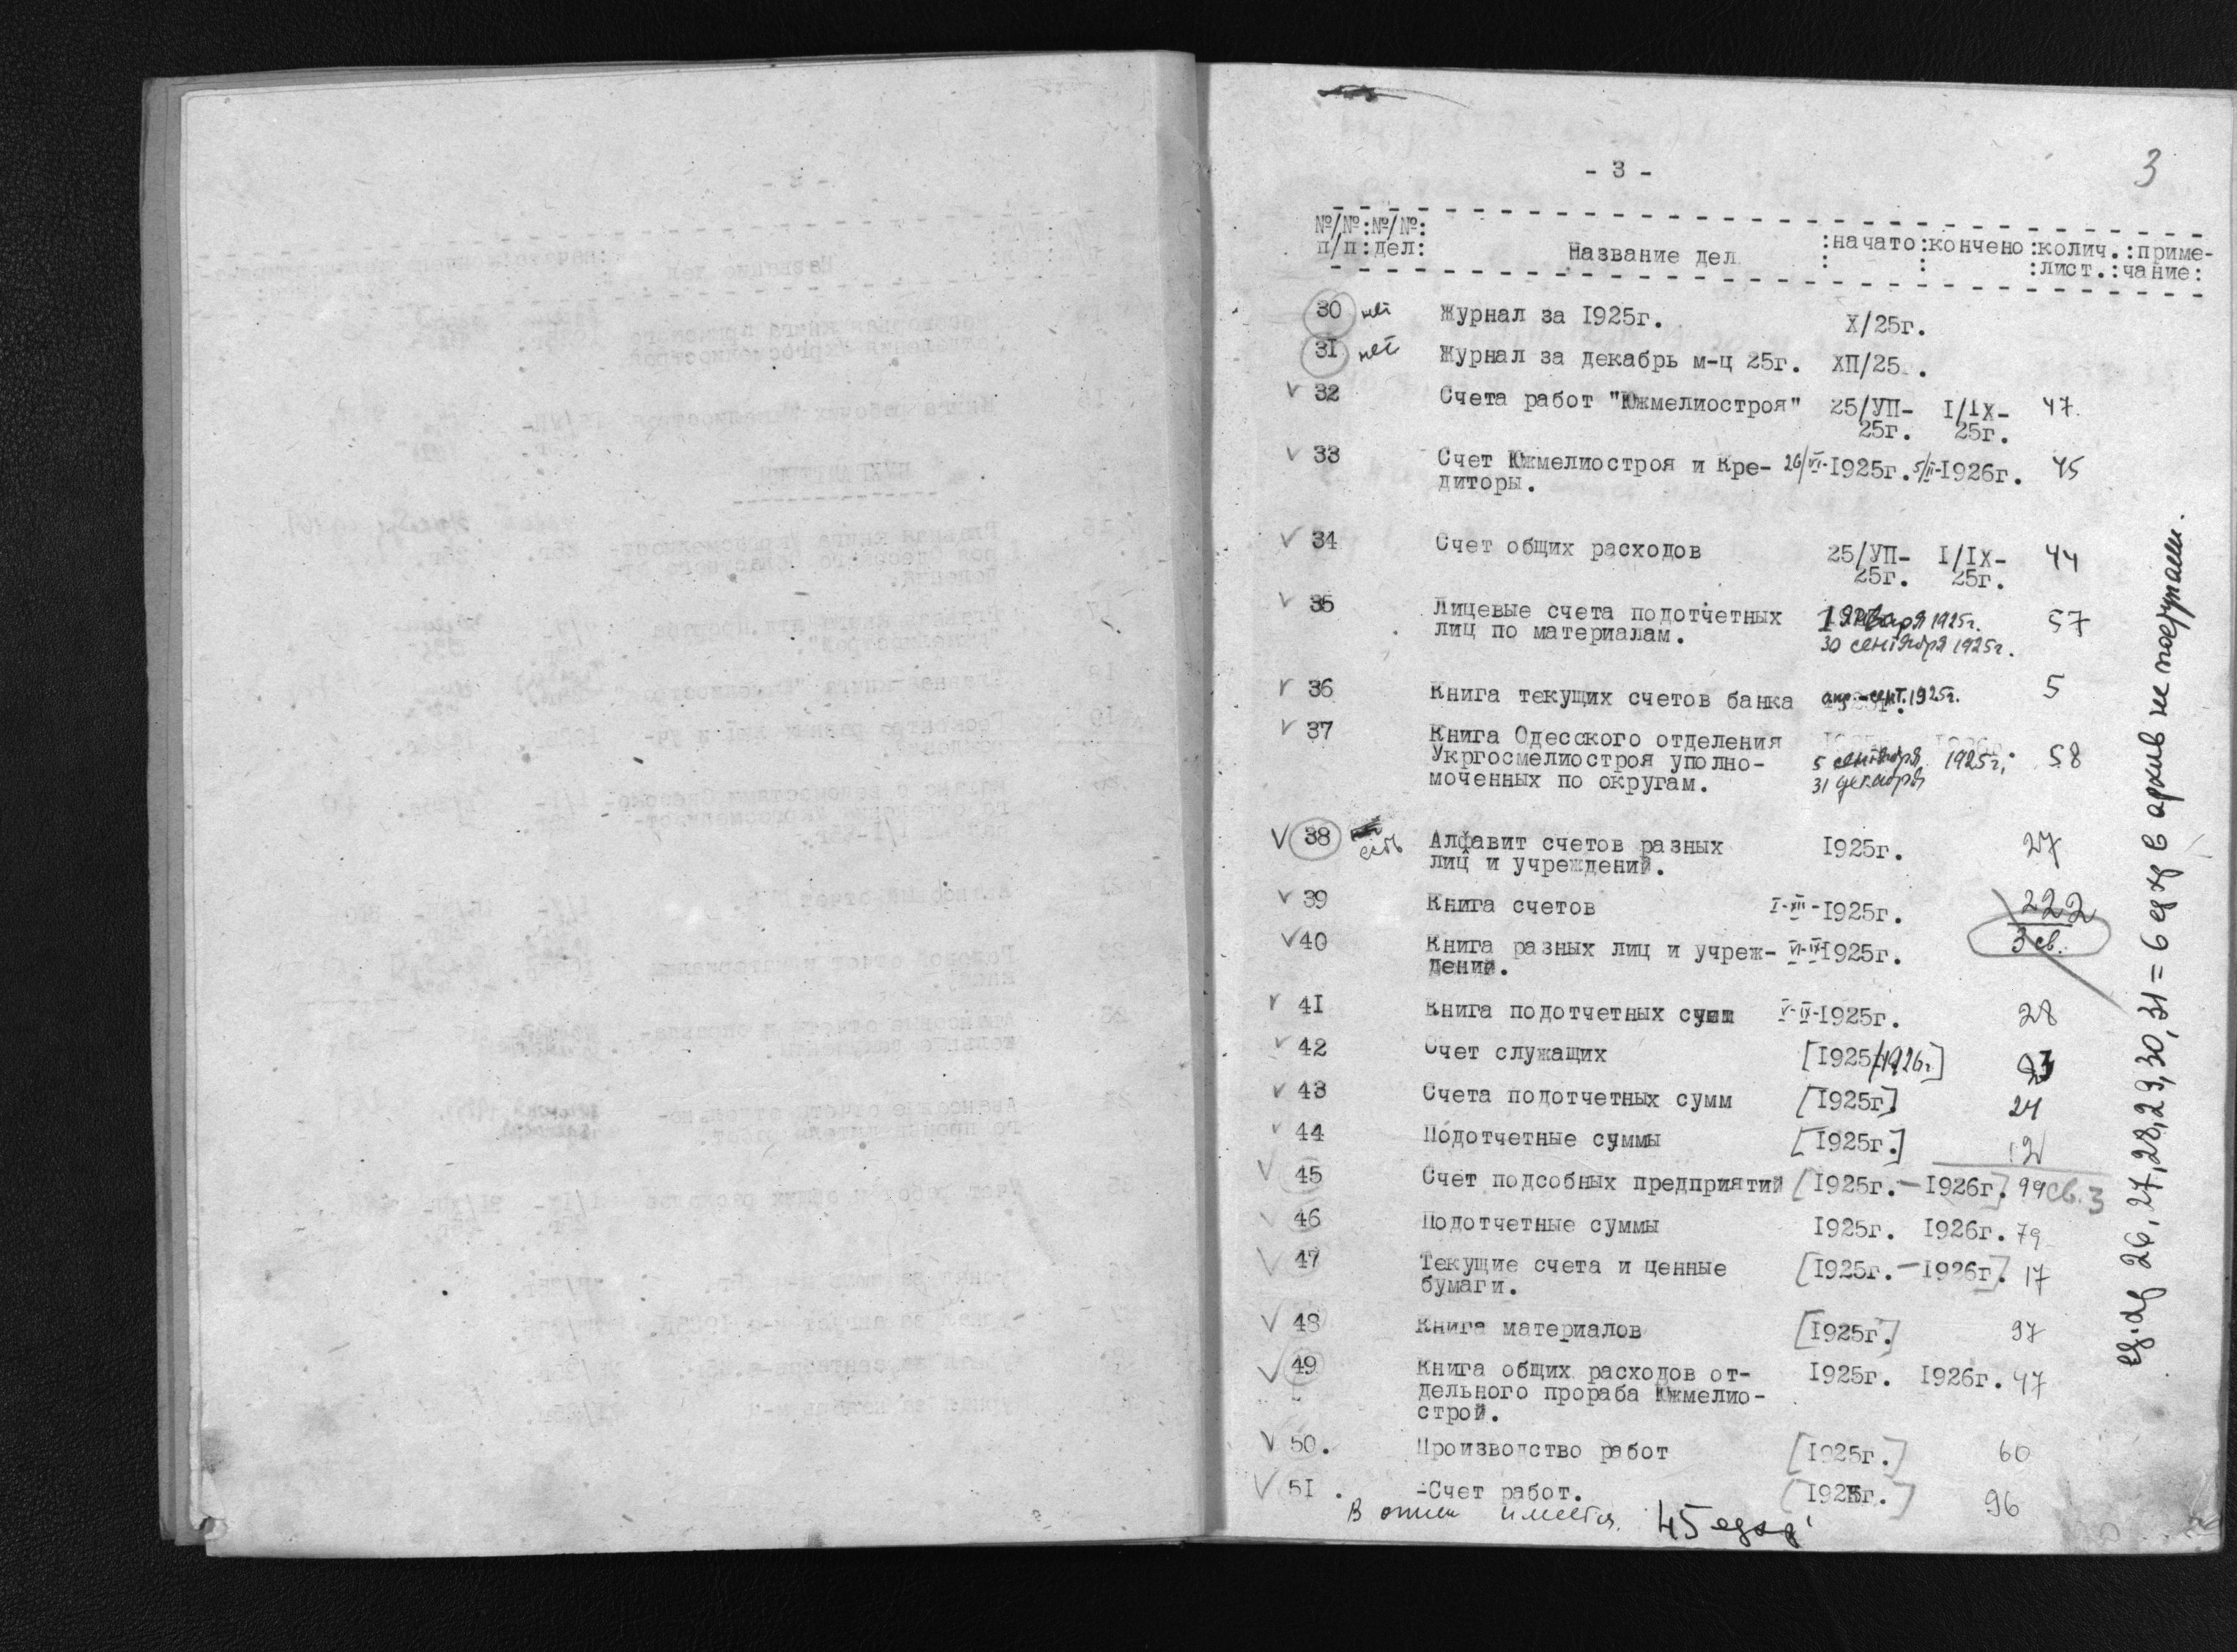 - 3 -
3
№/№:№/№:
п/п:дел: Название дел :начато:кончено:колич.:приме-
:лист.:чание:
30 нет Журнал за 1925г. X/25г.
31 нет Журнал за декабрь м-ц 25г. ХП/25 .
v 32 Счета работ "Южмелиостроя" 25/УП- I/IX- 47.
25г. 25г.
v 33 Счет Южмелиостроя и Кре- 26/VI-1925г. 5/II-1926г. 45
диторы.
v 34 Счет общих расходов 25/УП- I/IX- 44
25г. 25г.
v 35 Лицевые счета подотчетных 1 января 1925г. 57
лиц по материалам. 30 сентября 1925г.
v 36 Книга текущих счетов банка апр.-сент.1925г. 5
v 37 Книга Одесского отделения
Укргосмелиостроя уполно- 5 сентября 1925г. 58
моченных по округам. 31 декабря
V 38 есть Алфавит счетов разных 1925г. 27
лиц и учреждений.
v 39 Книга счетов I-XII-1925г. 222
v 40 Книга разных лиц и учреж- VI-IX-1925г. 3 св.
дений.
v 41 Книга подотчетных сумм V-IX-1925г. 28
v 42 Счет служащих [1925/1926г.] 23
v 43 Счета подотчетных сумм [1925г.] 24
v 44 Подотчетные суммы [1925г.] 12
V 45 Счет подсобных предприятий [1925г.-1926г.] 99 св.3
V 46 Подотчетные суммы 1925г. 1926г. 79
V 47 Текущие счета и ценные [1925г.-1926г]. 17
бумаги.
V 48 Книга материалов [1925г.] 97
V 49 Книга общих расходов от- 1925г. 1926г. 47
дельного прораба Южмелио-
строй.
V 50. Производство работ [1925г.] 60
V 51 . -Счет работ. [1925г.] 96
В описи имеется 45 ед хр
ед. хр 26, 27, 28, 29, 30, 31 = 6 ед хр в архив не поступали.